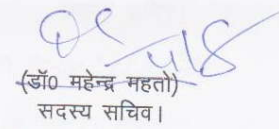 (डॉ0 महेन्द्र महतो)
सदस्य सचिव।